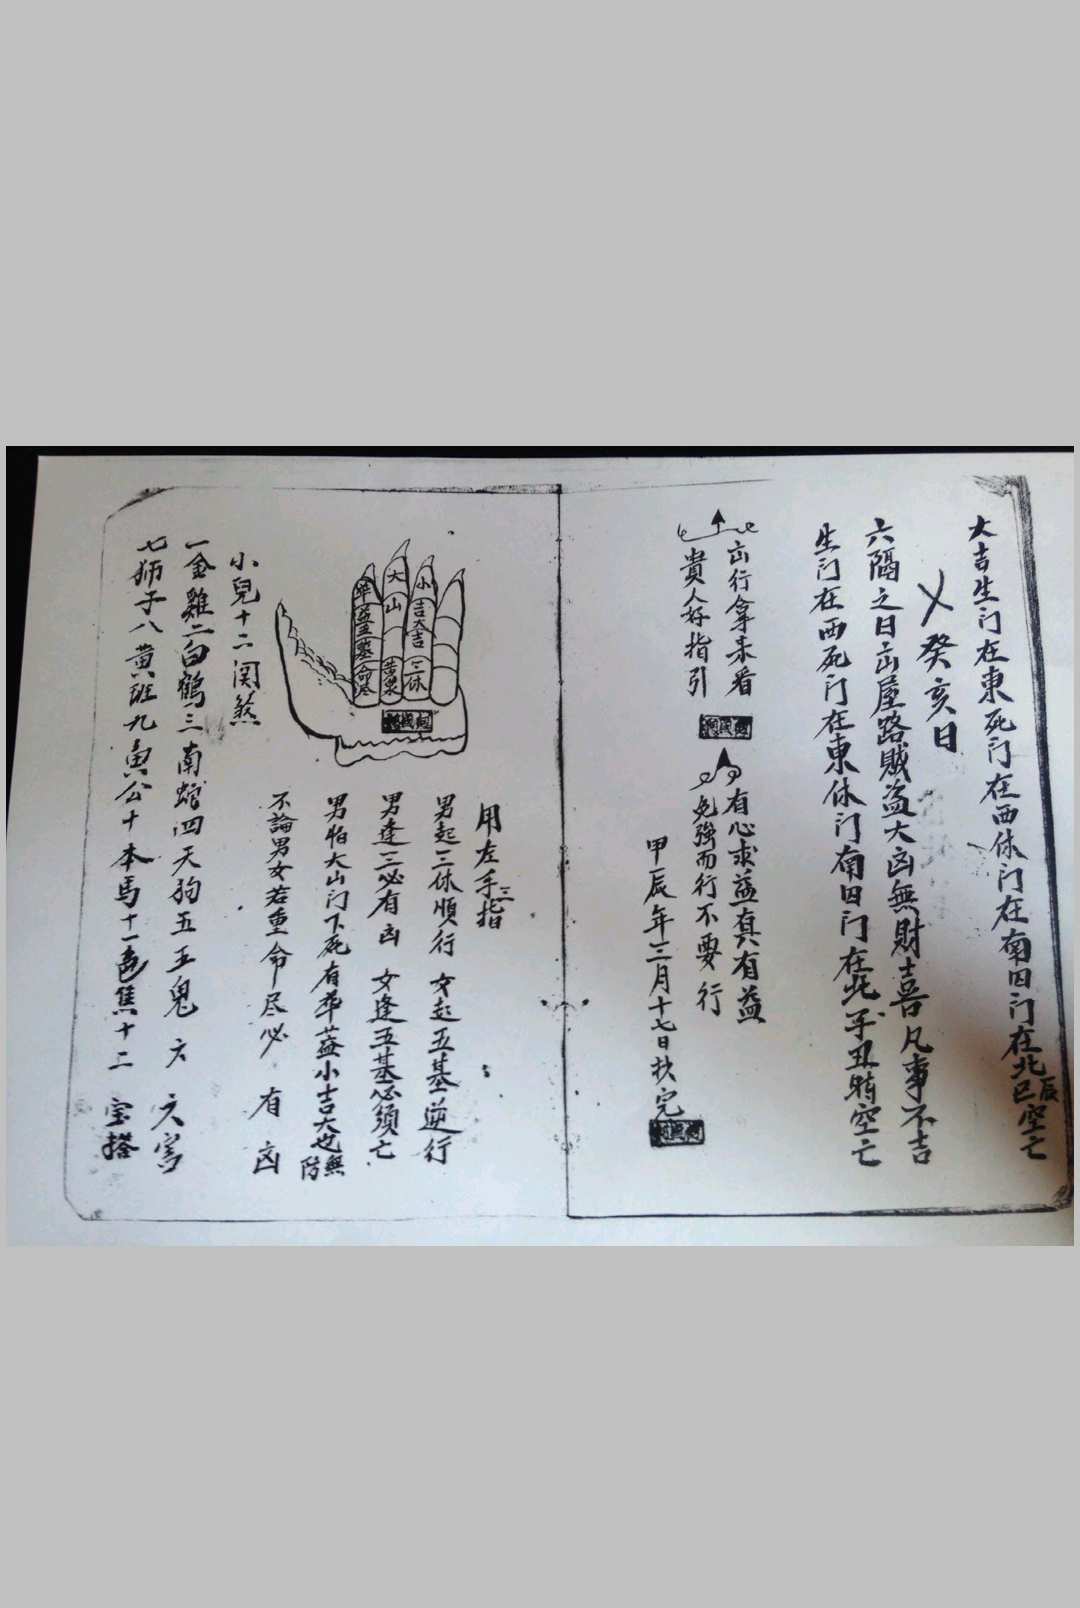 大吉生门在東死门在西休门在南囚门在北辰巳空亡
癸亥日
六隔之日出屋路賊盗大凶無財喜凡事不吉
生门在西死门在東休门南囚门在北子丑時空亡
出行拿来看
貴人好指引
有心求益真有益
勉強而行不要行
甲辰年三月十七日抄完
用左手三指
男起三休順行 女起五基逆行
男逢三必有凶 女逢五基必須亡
男怕大山门下死有華蓋小吉大也無防
不論男女若重命尽必有凶
華蓋
墓
命尽
大
山
苦果
小
吉
大吉
三休
小兒十二関煞
一金雞二白鶴三南蛇四天狗五五鬼六 六害
七狮子八黄班九寅公十本馬十一色焦十二 宝搭